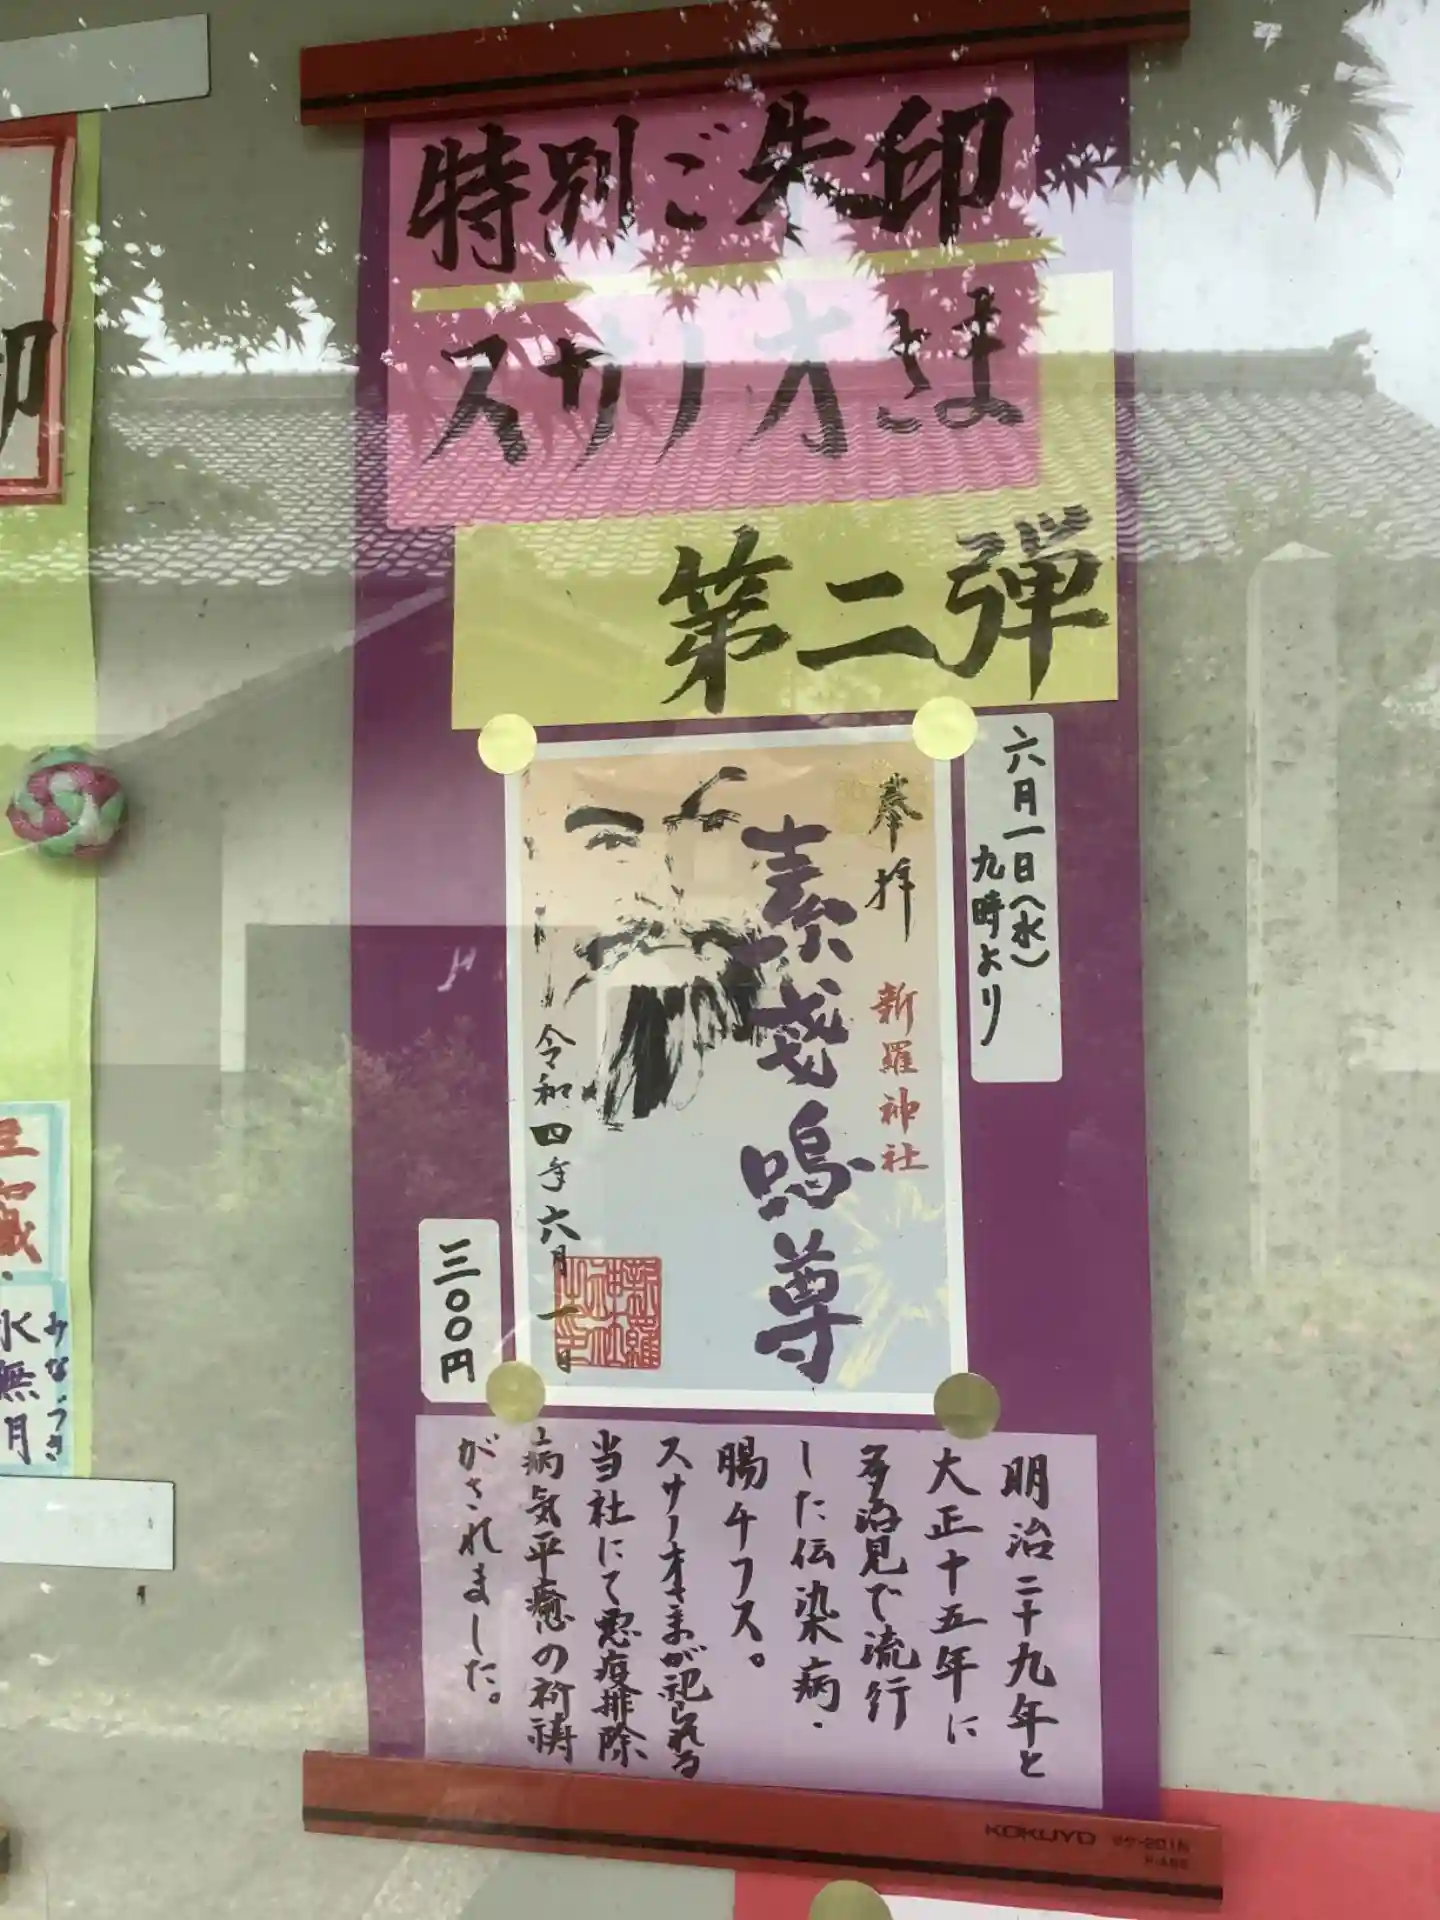 特別ご朱印
スサノオさま
第二弾
六月一日(水)
九時より
奉拝
新羅神社
素戔嗚尊
令和四年六月一日
三〇〇円
明治二十九年と
大正十五年に
多治見で流行
した伝染病・
腸チフス。
スサノオさまが祀られる
当社にて悪疫排除
病気平癒の祈祷
がされました。
KOKUYO
印
みなづき
水無月